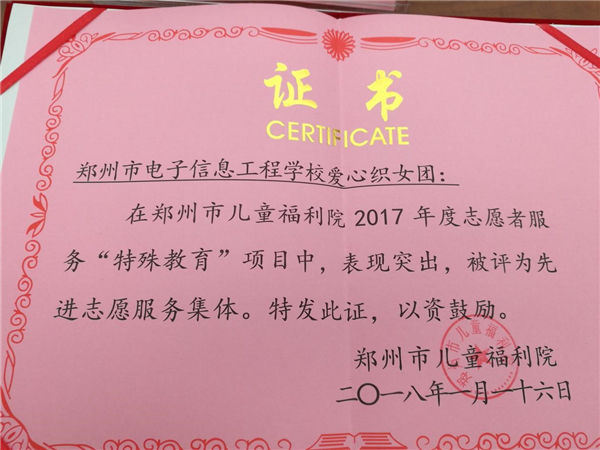 证书
CERTIFICATE
郑州市电子信息工程学校爱心织女团：
在郑州市儿童福利院 2017 年度志愿者服
务“特殊教育”项目中，表现突出，被评为先
进志愿服务集体。特发此证，以资鼓励。
郑州市儿童福利院
二〇一八年一月一十六日
郑州市儿童福利院